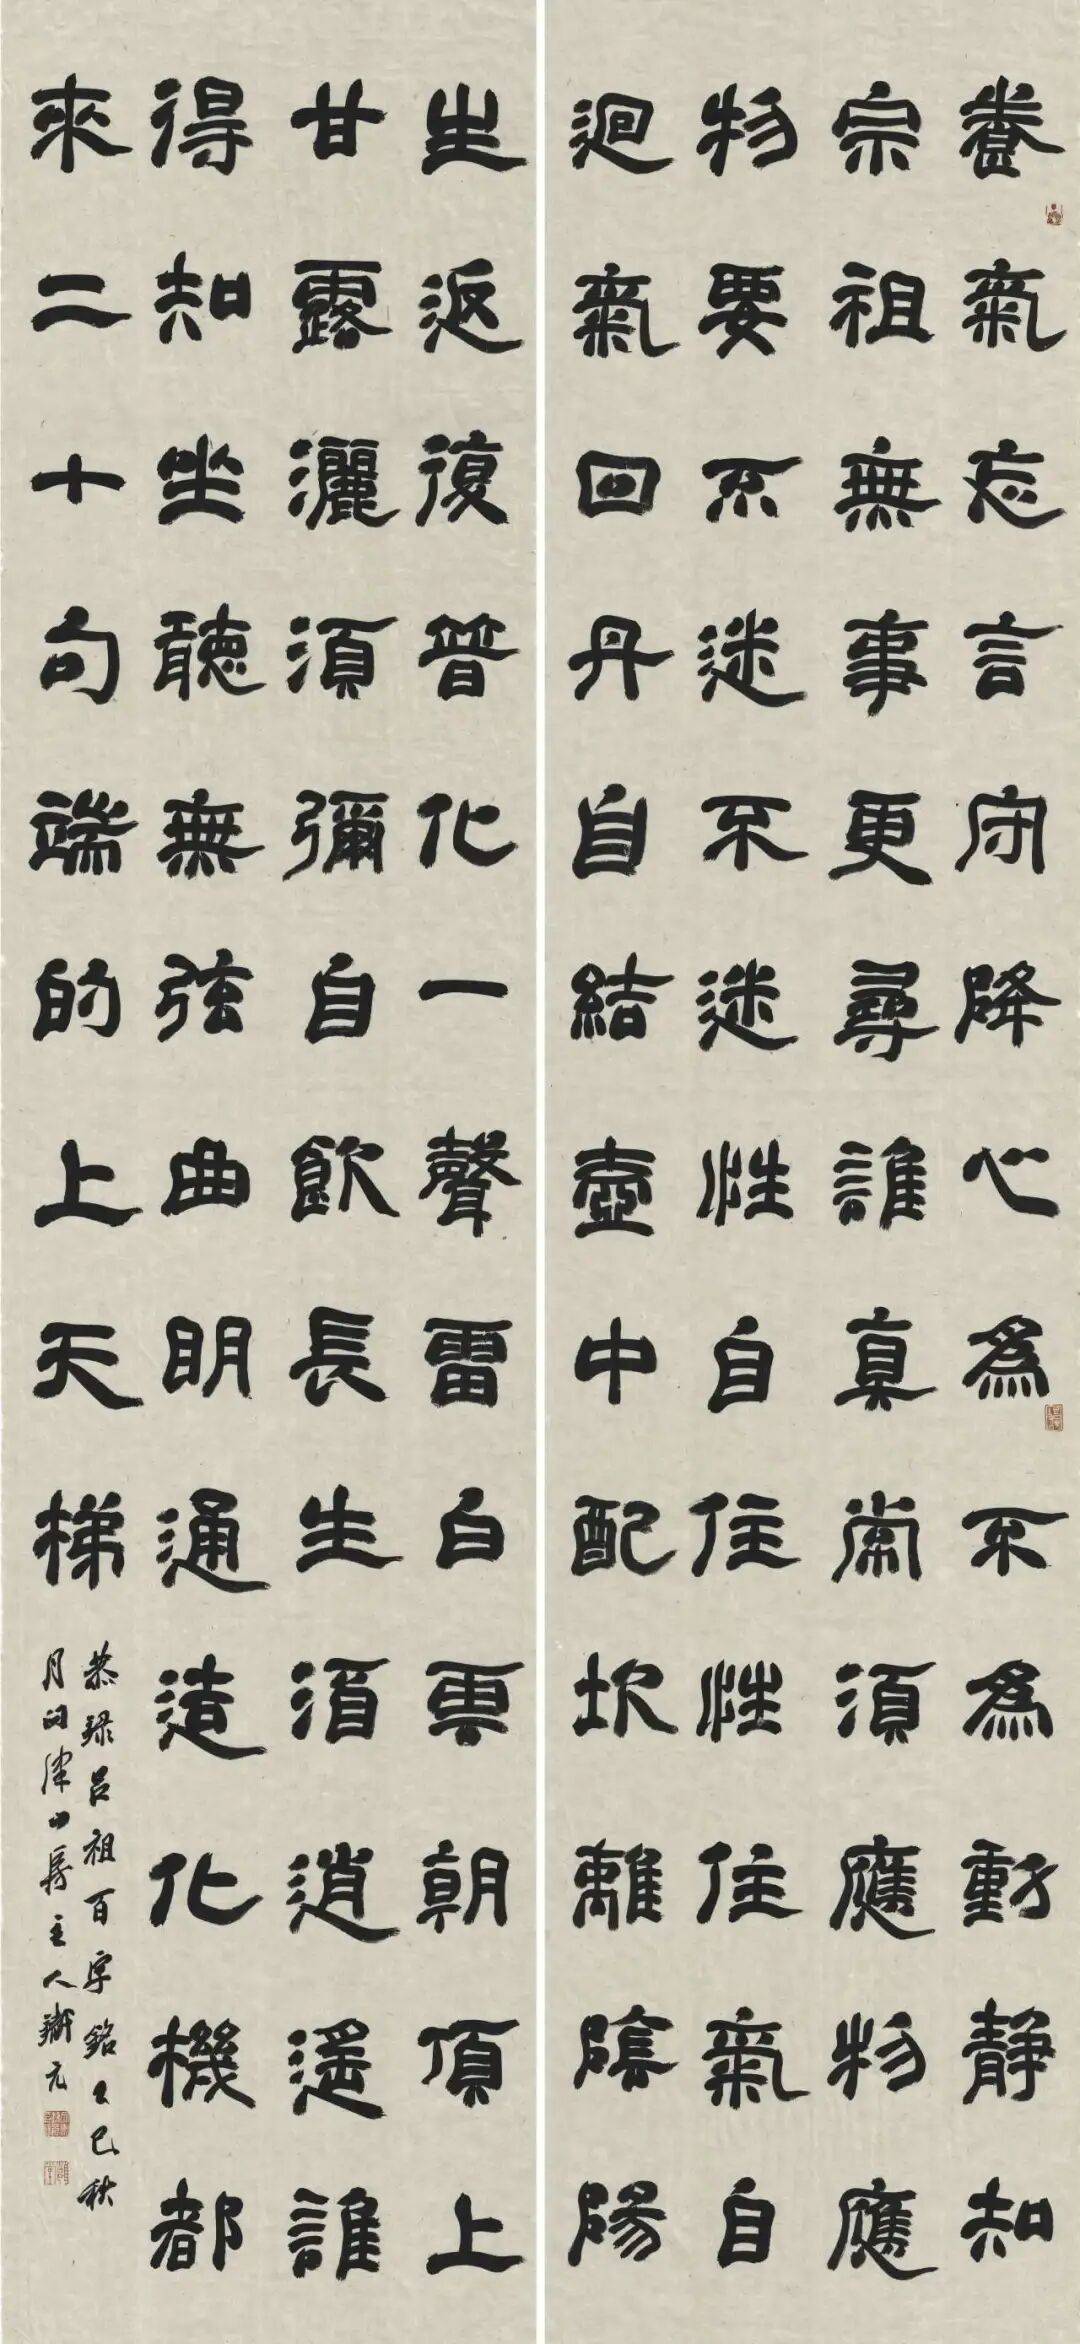 養氣忘言守降心為不為動靜知
宗祖無事更尋誰真常須應物應
物要不迷不迷性自住性住氣自
迴氣回丹自結壺中配坎離陰陽
生返復普化一聲雷白雲朝頂上
甘露灑須彌自飲長生酒逍遙誰
得知坐聽無弦曲明通造化機都
來二十句端的上天梯
恭録呂祖百字銘乙巳秋
月問津山房主人元